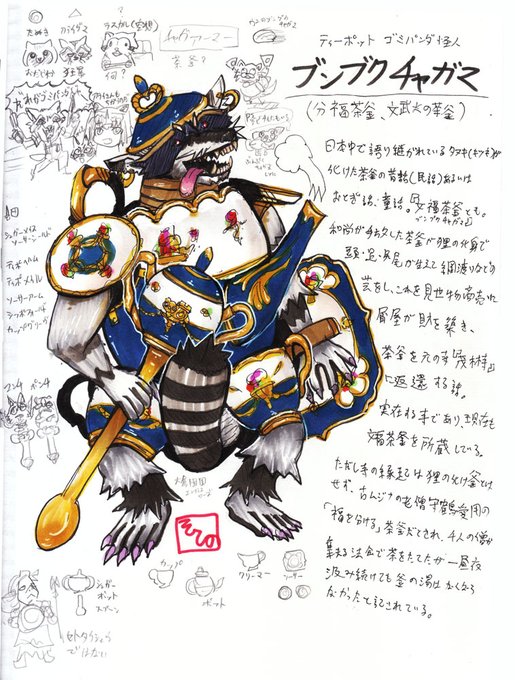 ティーポット ゴミパンダ怪人
ブンブクチャガマ
(分福茶釜、文武火の茶釜)
日本中で語り継がれているタヌキ(キツネ)が
化けた茶釜の昔話(民話)あるいは
おとぎ話、童話。『文福茶釜』とも。
ブンブクチャガマ
和尚が手に入れた茶釜が狸の化身で
頭・足・尻尾が生えて綱渡りなどの
芸をし、これを見世物商売に
屑屋が財を築き、
茶釜を元の寺『茂林寺』
に返還する話。
実在する寺であり、現在も
福茶釜を所蔵している。
ただし寺の縁起は狸の化け釜とは
せず、古ムジナの老僧守鶴愛用の
「福を分ける」茶釜だとされ、千人の僧が
集まる法会で茶をたてたが一昼夜
汲み続けても釜の湯はなくなら
なかったと記されている。
たぬき
アライグマ
ラスカル(空想)
何?
チャガマーマー
茶釜?
シュガーメイス
ソーサーシールド
ティポヘルム
ティポメイル
ソーサーアーム
カップグリーブ
カップ
クリーマー
ソーサー
ポット
シュガー
ポット
スプーン
セトタイショウ
ではない